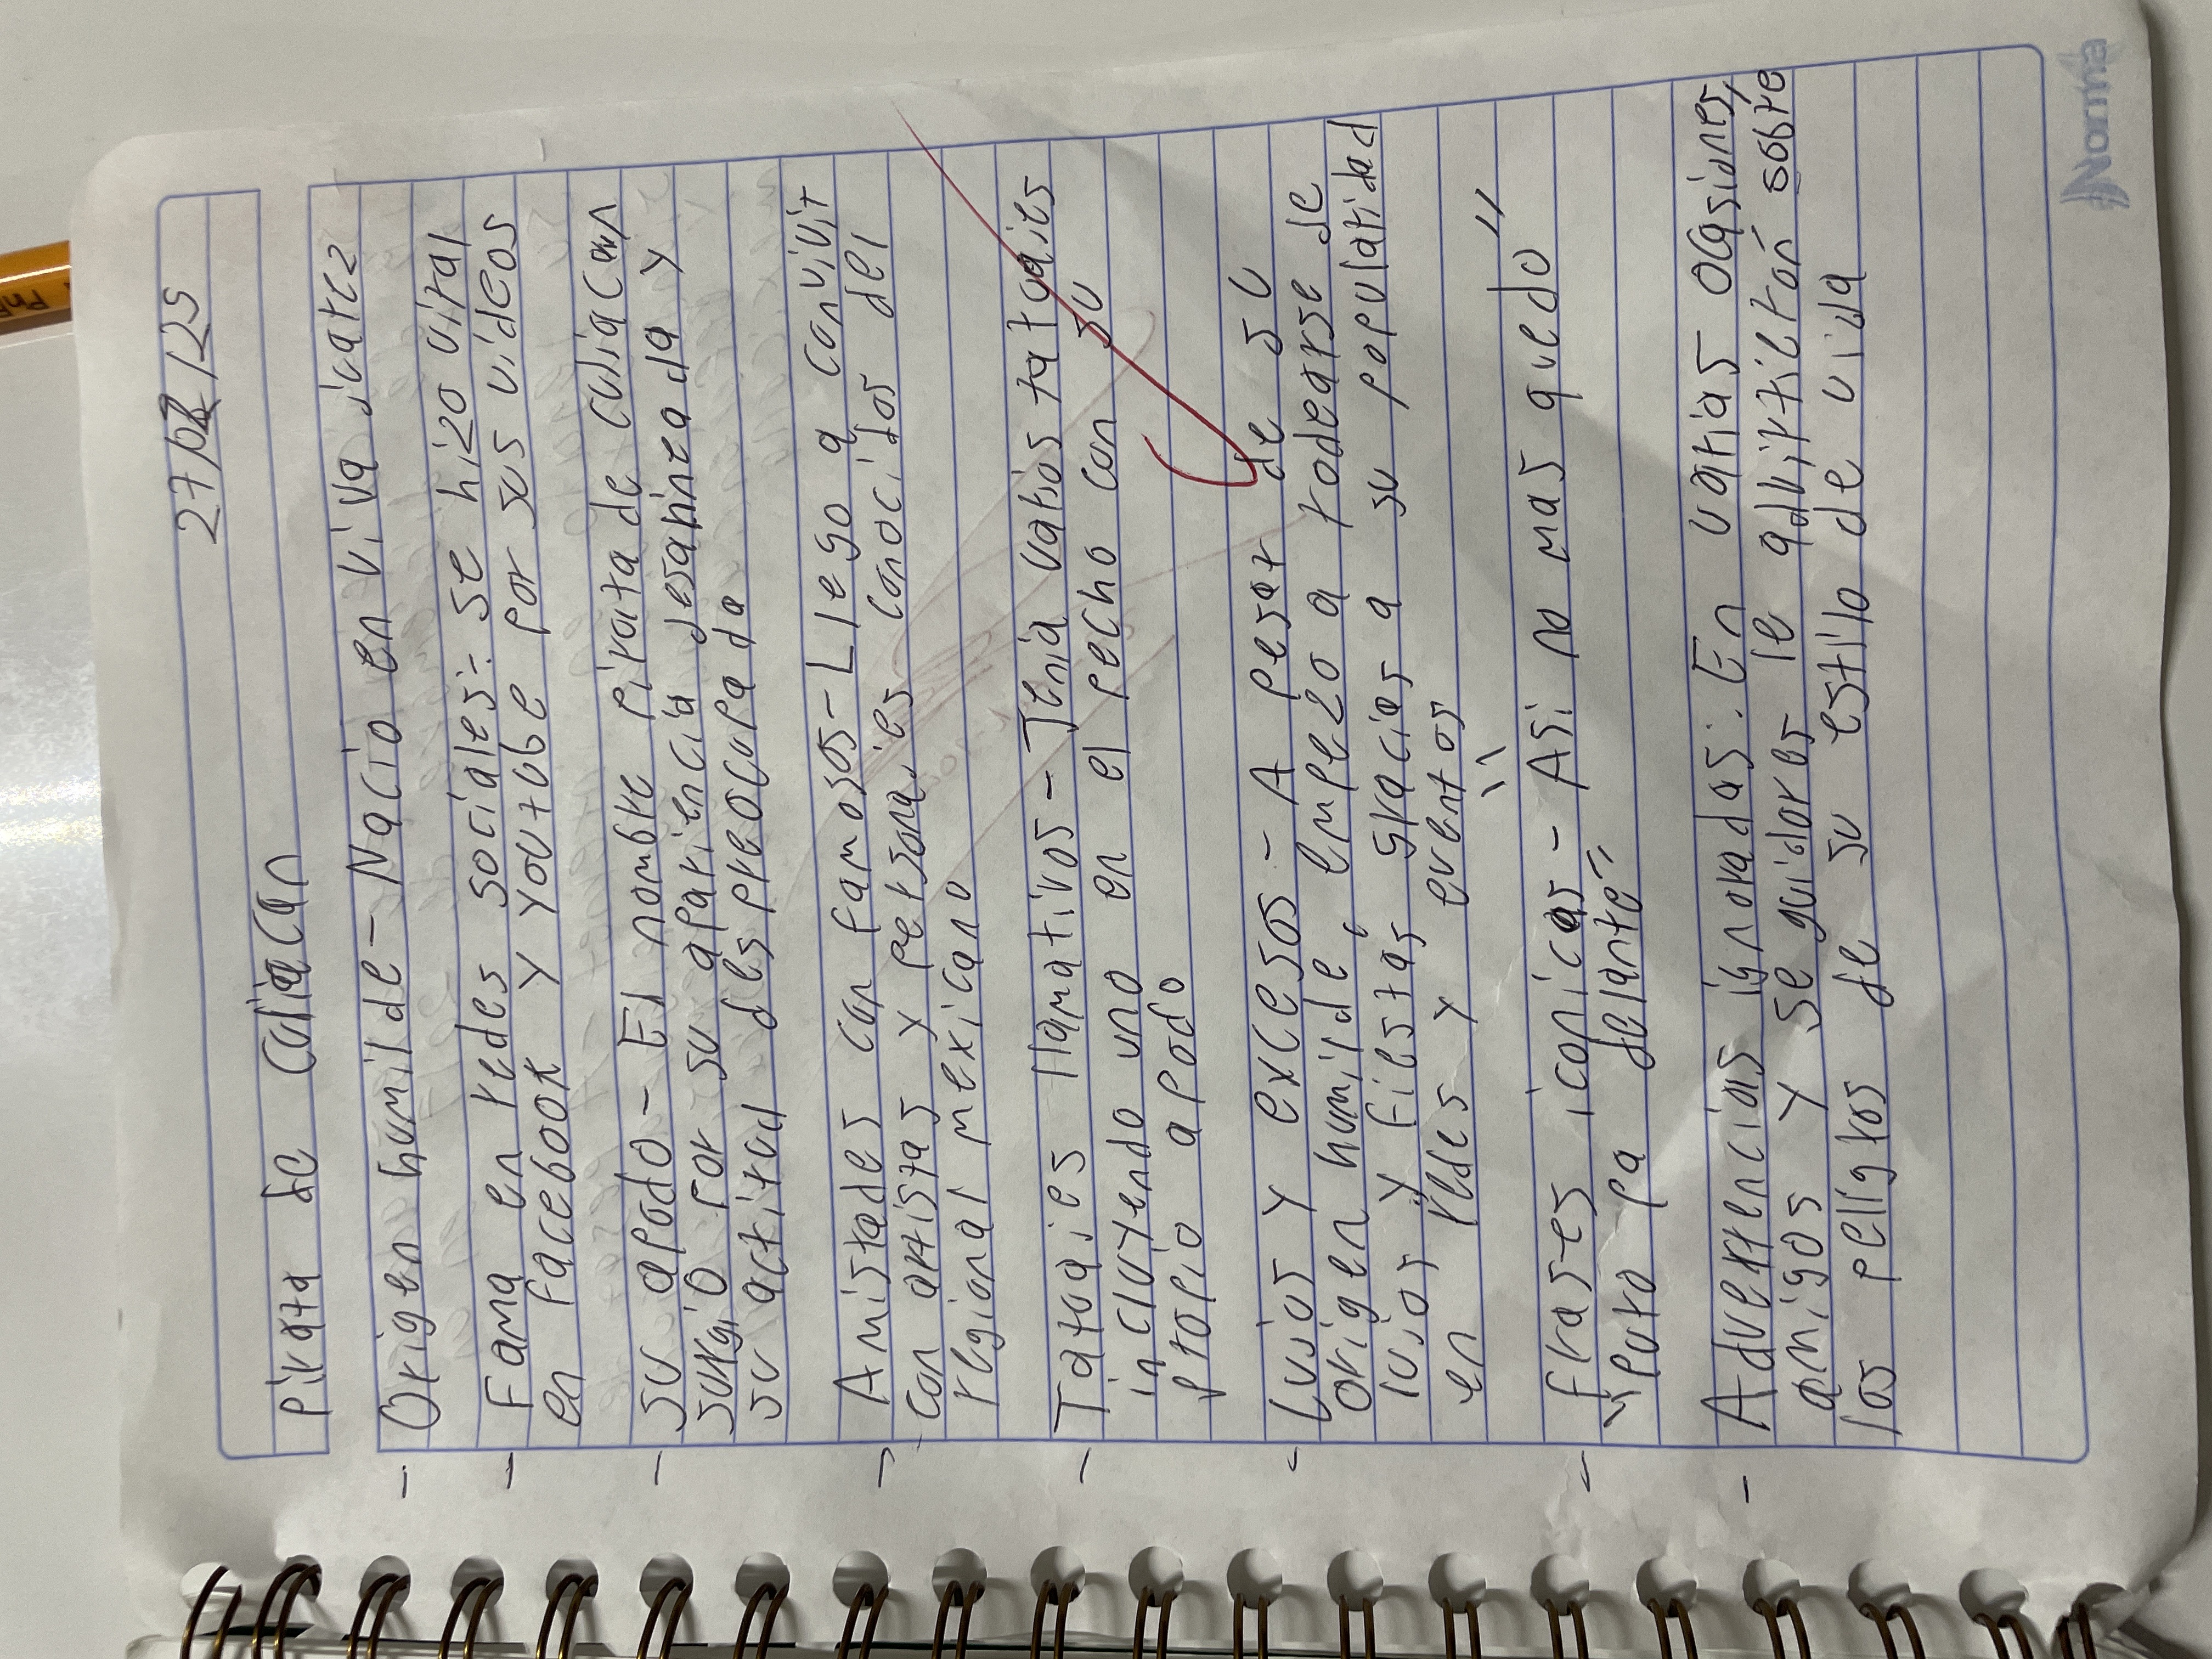 27/02/25
Pirata de Culiacan
- Origen humilde - Nacio en Viva jicatez
- Fama en redes sociales: se hizo viral
en facebook y youtube por sus videos
- Su apodo - El nombre pirata de culiacan
surgio por su apariencia desalinea da y
su actitud des preocupa da
- Amistades con famosos - Llego a convivir
con artistas y personajes conocidos del
regional mexicano
- Tatoajes llamativos - Tenia varios tatoajes
incluyendo uno en el pecho con su
propio apodo
- Lujos y excesos - A pesar de su
origen humilde, empezo a rodearse de
lujos y fiestas gracias a su popularidad
en redes y eventos
- frases iconicas - "Asi no mas quedo"
"Puro pa delante"
- Adverrencias ignoradas: En varias ocasiones,
amigos y seguidores le advirtieron sobre
los peligros de su estilo de vida
Norma